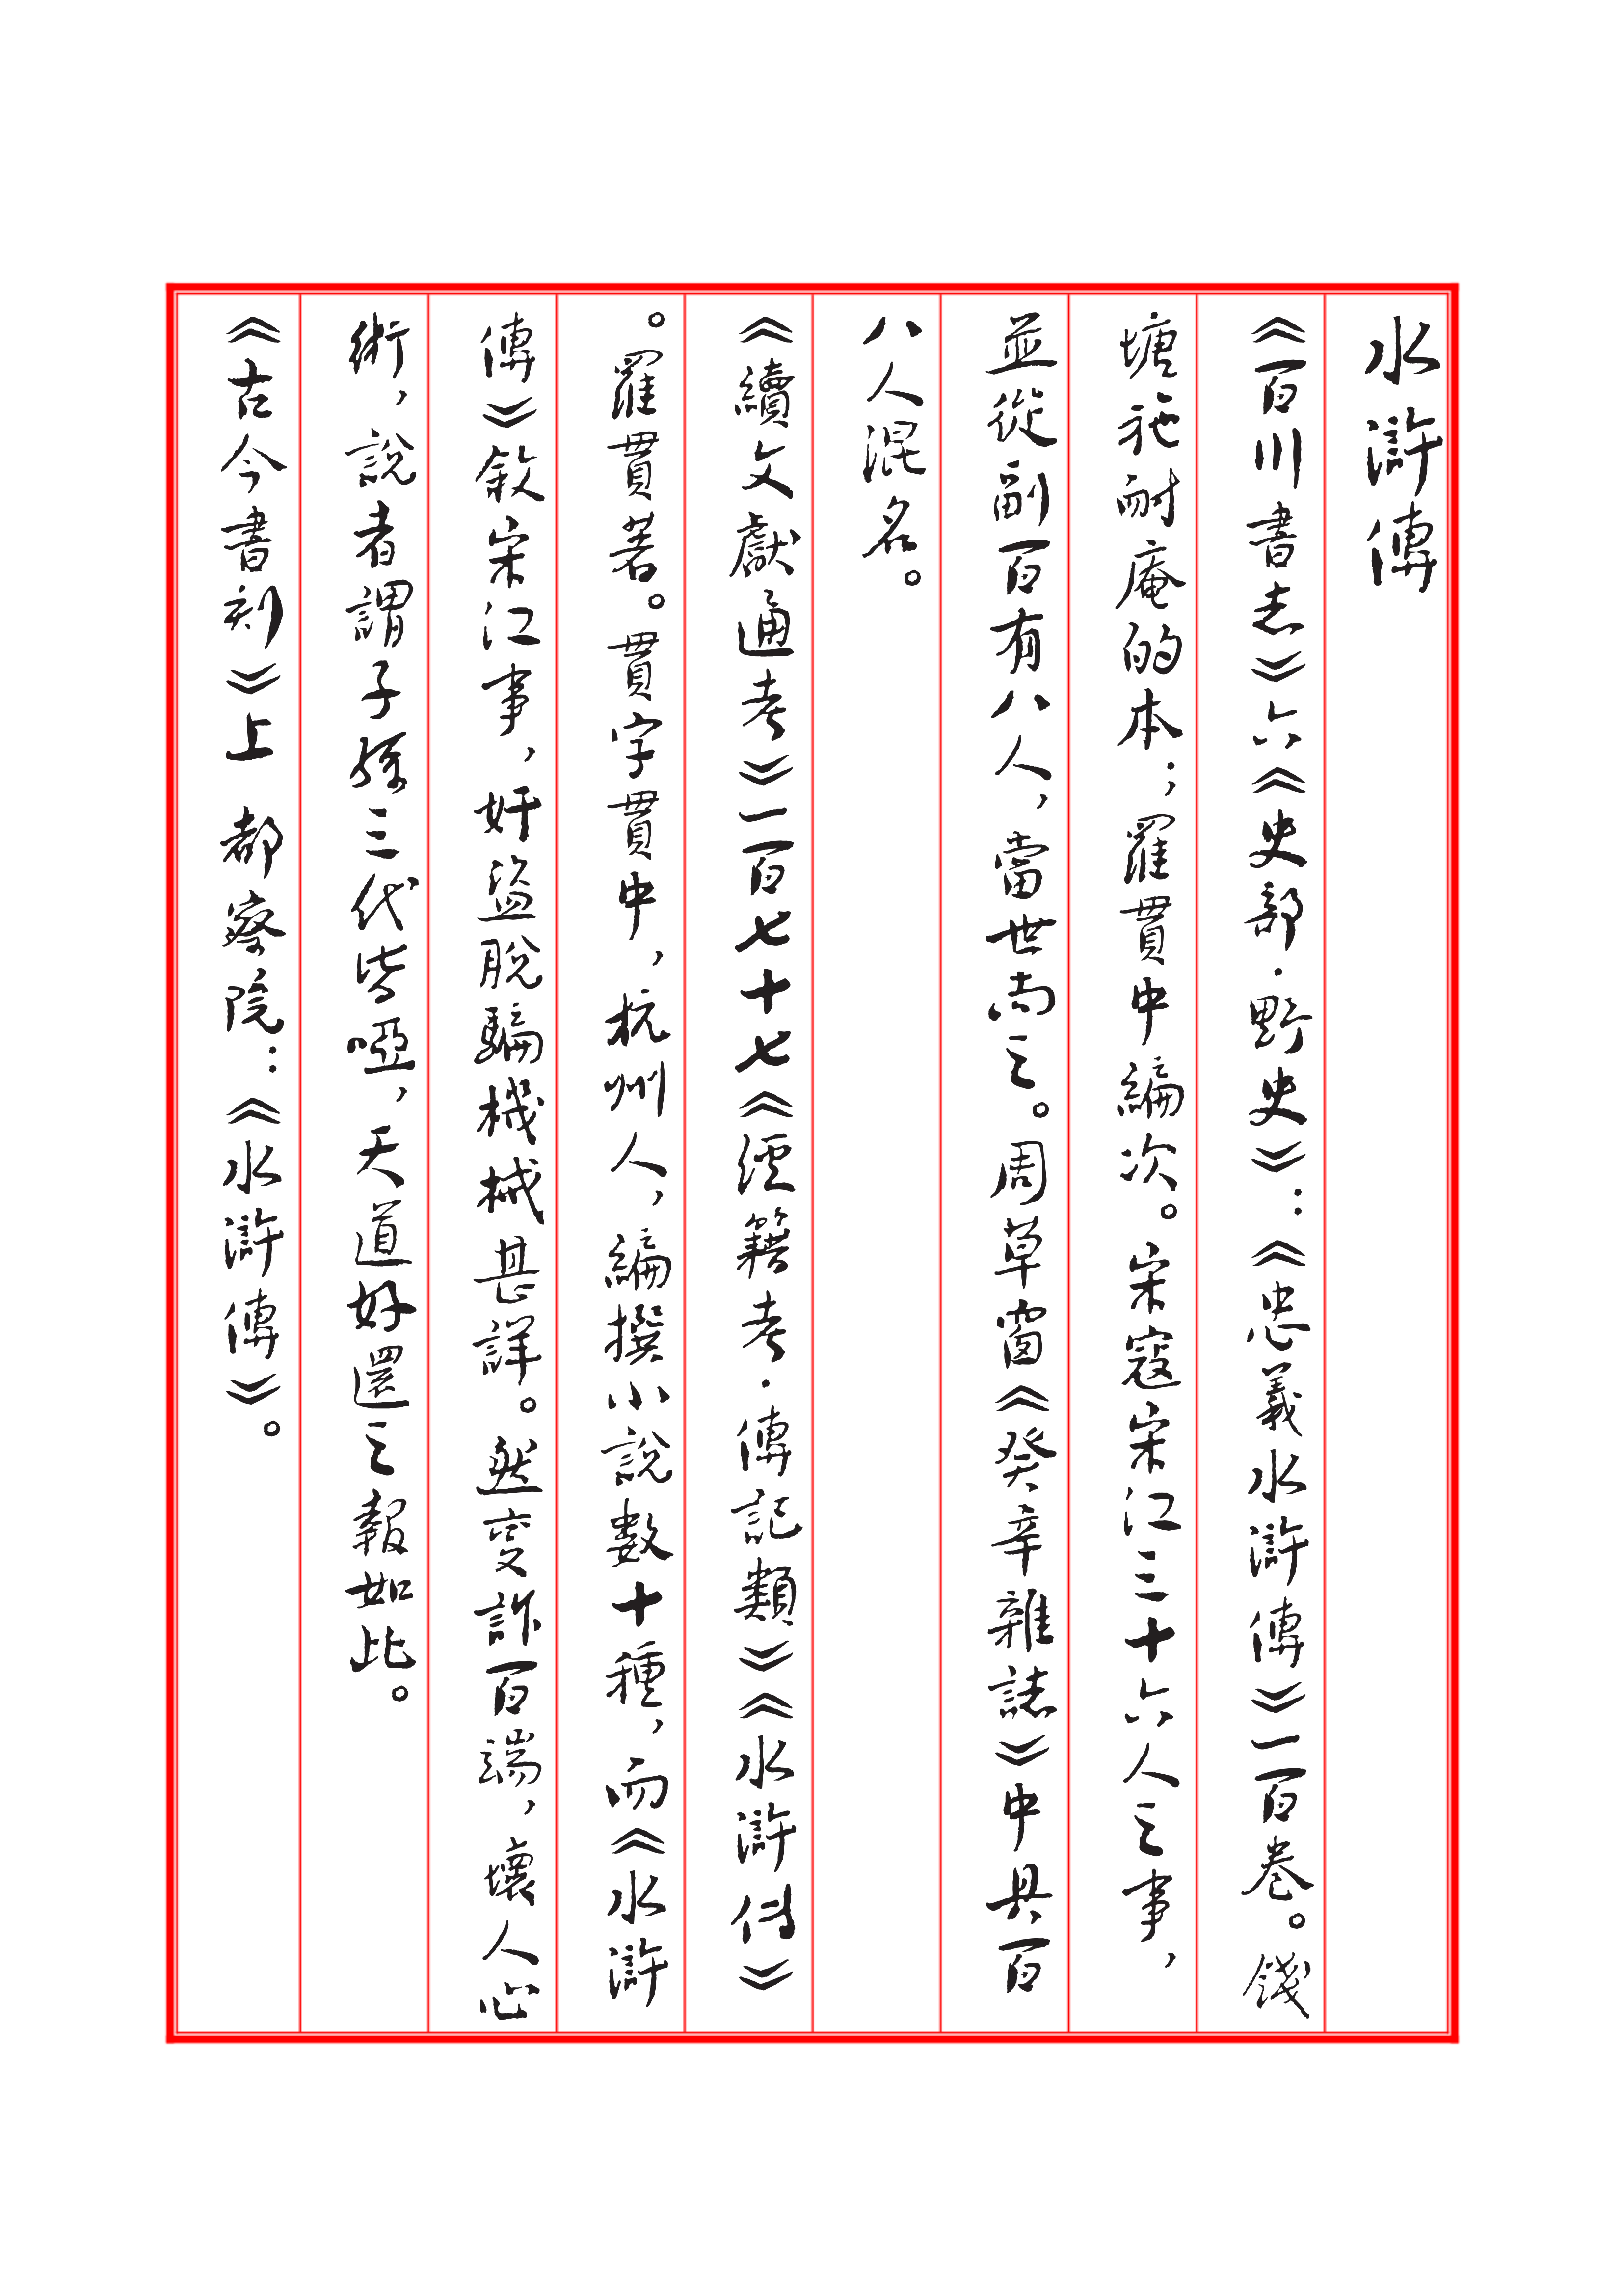 水滸傳
《百川書志》六《史部·野史》：《忠義水滸傳》一百卷。錢
塘施耐庵的本；羅貫中編次。宋寇宋江三十六人之事，
並從副百有八人，當世尚之。周草窗《癸辛雜誌》中具百
八人混名。
《續文獻通考》一百七十七《經籍考·傳記類》《水滸传》
。羅貫著。貫字貫中，杭州人，編撰小說數十種，而《水滸
傳》敘宋江事，奸盜脫騙機械甚詳。然變詐百端，壞人心
術，說者謂子孫三代皆啞，天道好還之報如此。
《古今書刻》上　都察院：《水滸傳》。